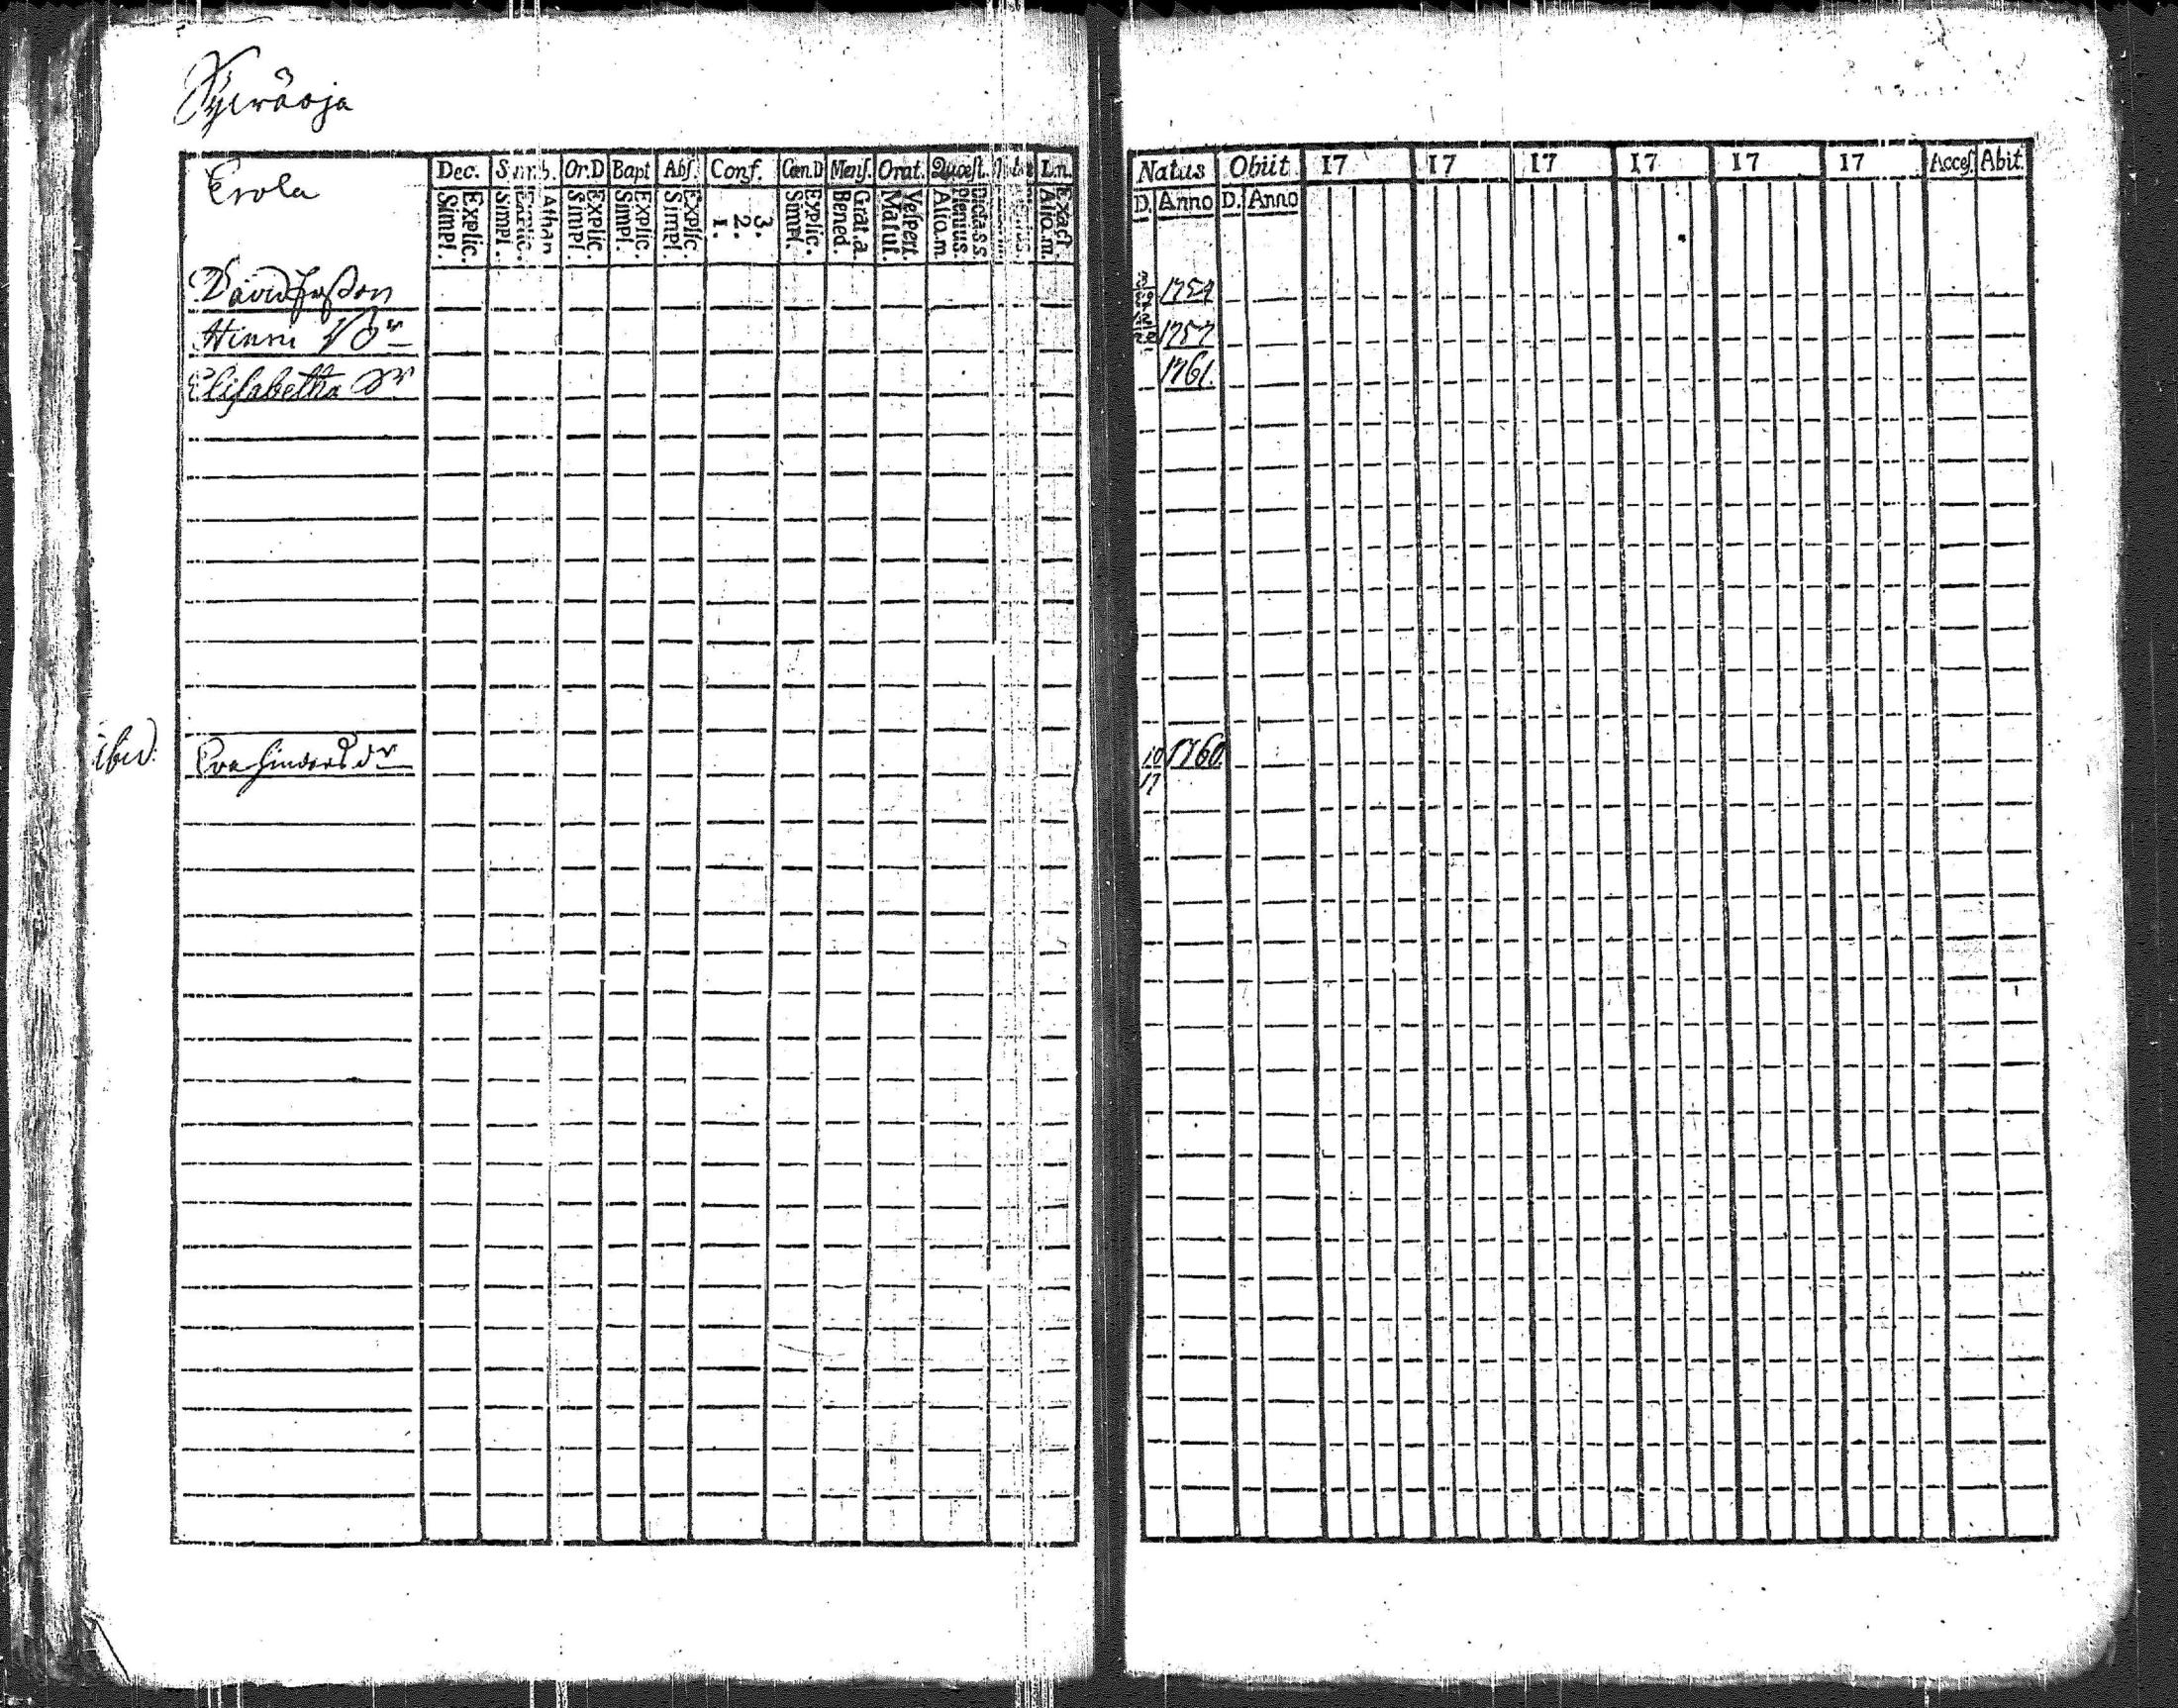 Syeräoja
Erola
Dec. Symb. Or.D Bapt Abſ. Conf. Cœn.D Menſ. Orat. Quœſt. L.n.
Explic. Simpl. Athan Explic. Simpl. Explic. Simpl Explic. Simpl. Explic. Simpl. 3. 2. 1. Explic. Simpl. Grat.a. Bened. Veſpert. Matut. Dicta S.S. Plenius. Aliq.m. Exact. Aliq.m.
Natus Obiit 17 17 17 17 17 17 Acceſ. Abit.
D. Anno D. Anno
David 1754
Hinric 1757
Elisabetha dr 1761.
ibid: Eva dr 10 17 1760